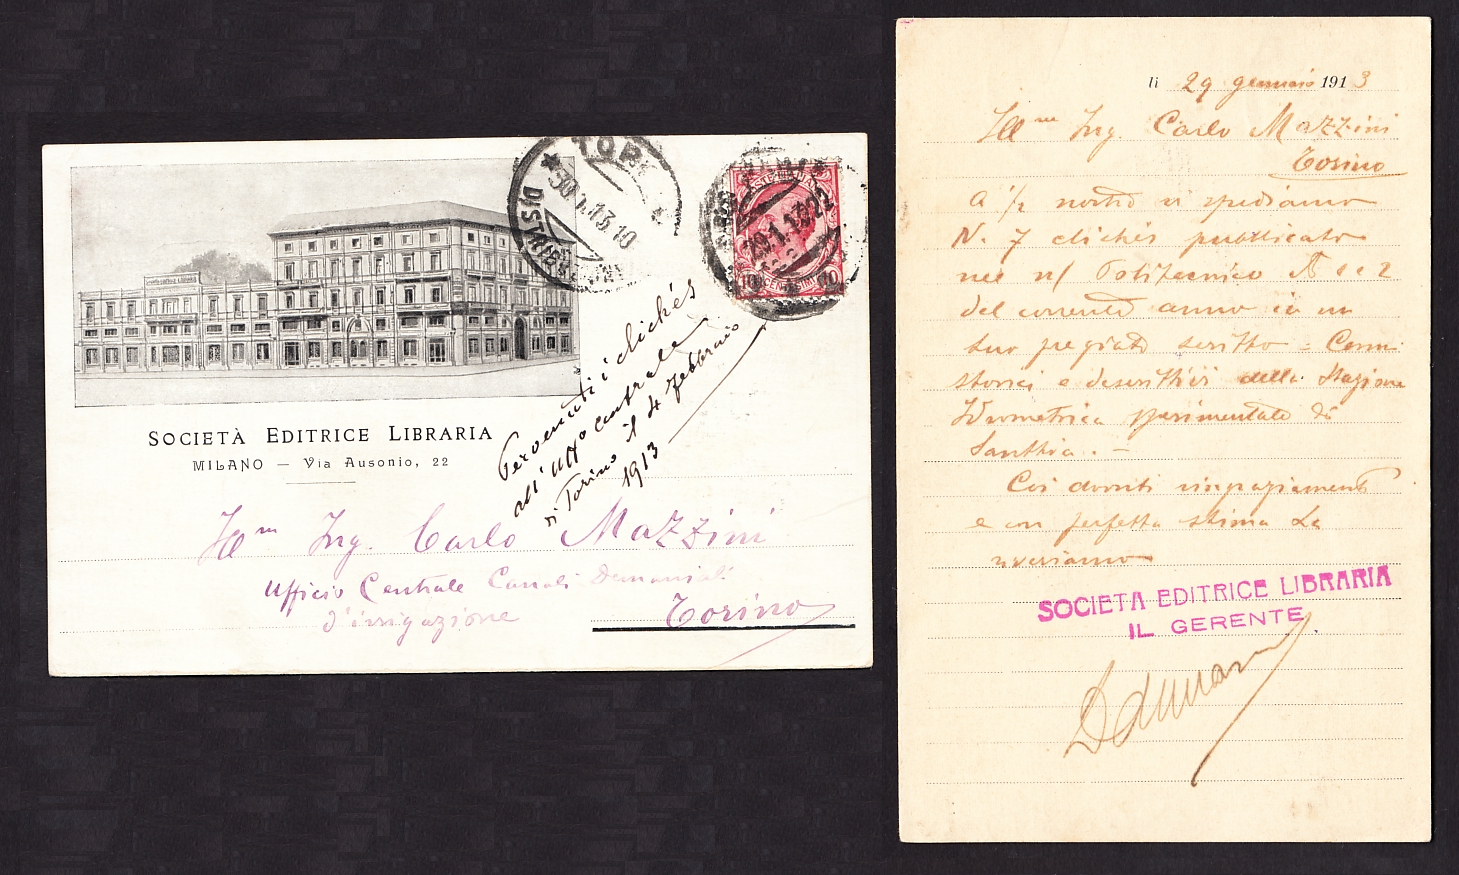 SOCIETÀ EDITRICE LIBRARIA
MILANO — Via Ausonio, 22
TORI
30.1.13.10
DISTRIB
29.1.13
10 CENTESIMI 10
Pervenuti i clichés
all'uff° centrale
di Torino il 4 febbraio
1913
Ill^mo Ing. Carlo Mazzini
Ufficio Centrale Canali Demaniali
d'irrigazione
Torino
li 29 gennaio 1913
Ill^mo Ing. Carlo Mazzini
Torino
A 1/2 nostro vi spediamo
N. 7 clichés pubblicato
nel n/ Politecnico N 1 e 2
del corrente anno in un
suo pregiato scritto = Cenni
storici e descrittivi della Stazione
Idrometrica sperimentale di
Santhia. —
Coi dovuti ringraziamenti
e con perfetta stima La
riveriamo
SOCIETA EDITRICE LIBRARIA
IL GERENTE